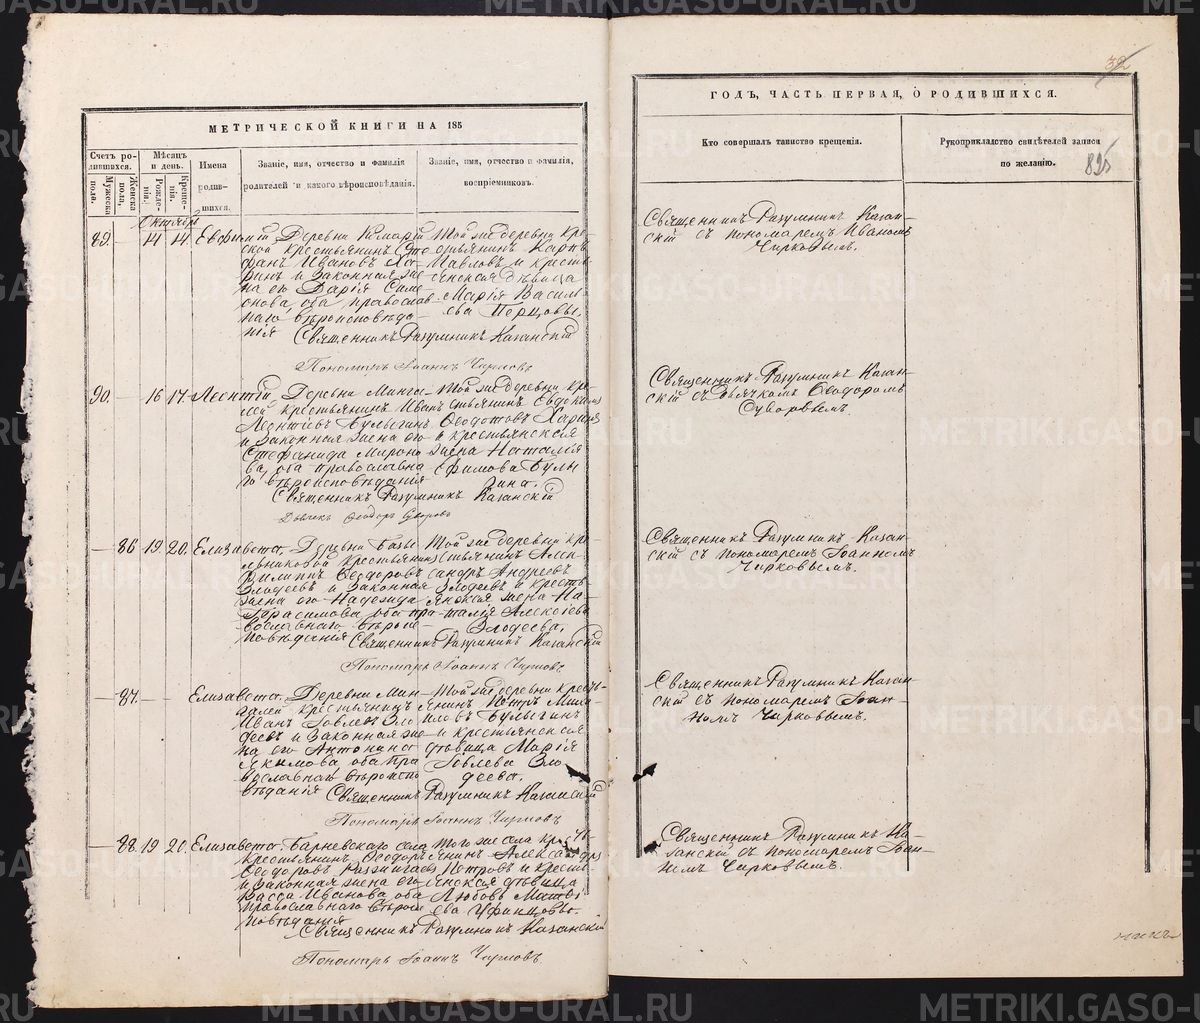 МЕТРИЧЕСКОЙ КНИГИ НА 185
Счетъ родившихся.
Мужеска пола.
Женска пола.
Мѣсяцъ и день.
Рожденія.
Крещенія.
Имена родившихся.
Званіе, имя, отчество и фамилія родителей и какого вѣроисповѣданія.
Званіе, имя, отчество и фамилія, воспріемниковъ.
Октябрь
89. — 14 14 Евфимій,
Деревни
ской крестьянинъ Сте
фанъ Ивановъ
и законная же
на его Дарія Сам
онова, оба православ
наго вѣроисповѣда
нія
Той же деревни кре
стьянинъ Карпъ
Павловъ и кресть
янская дѣвица
Марія Василь
ева Перцовы.
Священникъ Разумникъ Казанскій
Пономарь Іоаннъ Чирковъ
90. 16 17. Леонтій,
Деревни Минга
лей крестьянинъ Иванъ
Леонтіевъ Булыгинъ
и законная жена его
Стефанида Мирона
ва, оба православна
го вѣроисповѣданія
Той же деревни кре
стьянинъ Евдокимъ
Ѳеодотовъ
и крестьянская
жена Наталія
Ефимова Булы
гина.
Священникъ Разумникъ Казанскій
Дьячекъ Ѳеодоръ Суворовъ
— 86 19. 20. Елизавета.
Деревни
льниковой крестьянинъ
Филиппъ Ѳеодоровъ
Злодеевъ и законная
жена его Надежда
Герасимова, оба пра
вославнаго вѣроис
повѣданія
Той же деревни кре
стьянинъ Алек
сандръ Андреевъ
Злодеевъ и кресть
янская жена На
талія Алексіева
Злодеева.
Священникъ Разумникъ Казанскій
Пономарь Іоаннъ Чирковъ
— 87. — — Елизавета.
Деревни Мин
галей крестьянинъ
Иванъ Іовлевъ Зло
деевъ и законная же
на его Антонина
Якимова, оба пра
вославнаго вѣроиспо
вѣданія
Той же деревни кресть
янинъ Петръ Миха
ловъ Булыгинъ
и крестьянская
дѣвица Марія
Іовлева Зло
деева.
Священникъ Разумникъ Казанскій
Пономарь Іоаннъ Чирковъ
— 88 19 20. Елизавета.
Барневскаго села
крестьянинъ Ѳеодоръ
Ѳеодоровъ
и законная жена его
Васса Иванова, оба
православнаго вѣроис
повѣданія
Того же села кре
янинъ Александръ
Петровъ и кресть
янская дѣвица
Любовь Матвѣ
ева Уфинцовы.
Священникъ Разумникъ Казанскій
Пономарь Іоаннъ Чирковъ.
32
ГОДЪ, ЧАСТЬ ПЕРВАЯ, О РОДИВШИХСЯ.
Кто совершалъ таинство крещенія.
Рукоприкладство свидѣтелей записи по желанію.
Священникъ Разумникъ Казан-
скій съ пономаремъ Иваномъ
Чирковымъ.
Священникъ Разумникъ Казан-
скій съ дьячкомъ Ѳеодоромъ
Суворовымъ.
Священникъ Разумникъ Казан-
скій съ пономаремъ Іоанномъ
Чирковымъ.
Священникъ Разумникъ Казан-
скій съ пономаремъ Іоан-
номъ Чирковымъ.
Священникъ Разумникъ Ка-
занскій съ пономаремъ Іоан-
номъ Чирковымъ.
METRIKI.GASO-URAL.RU